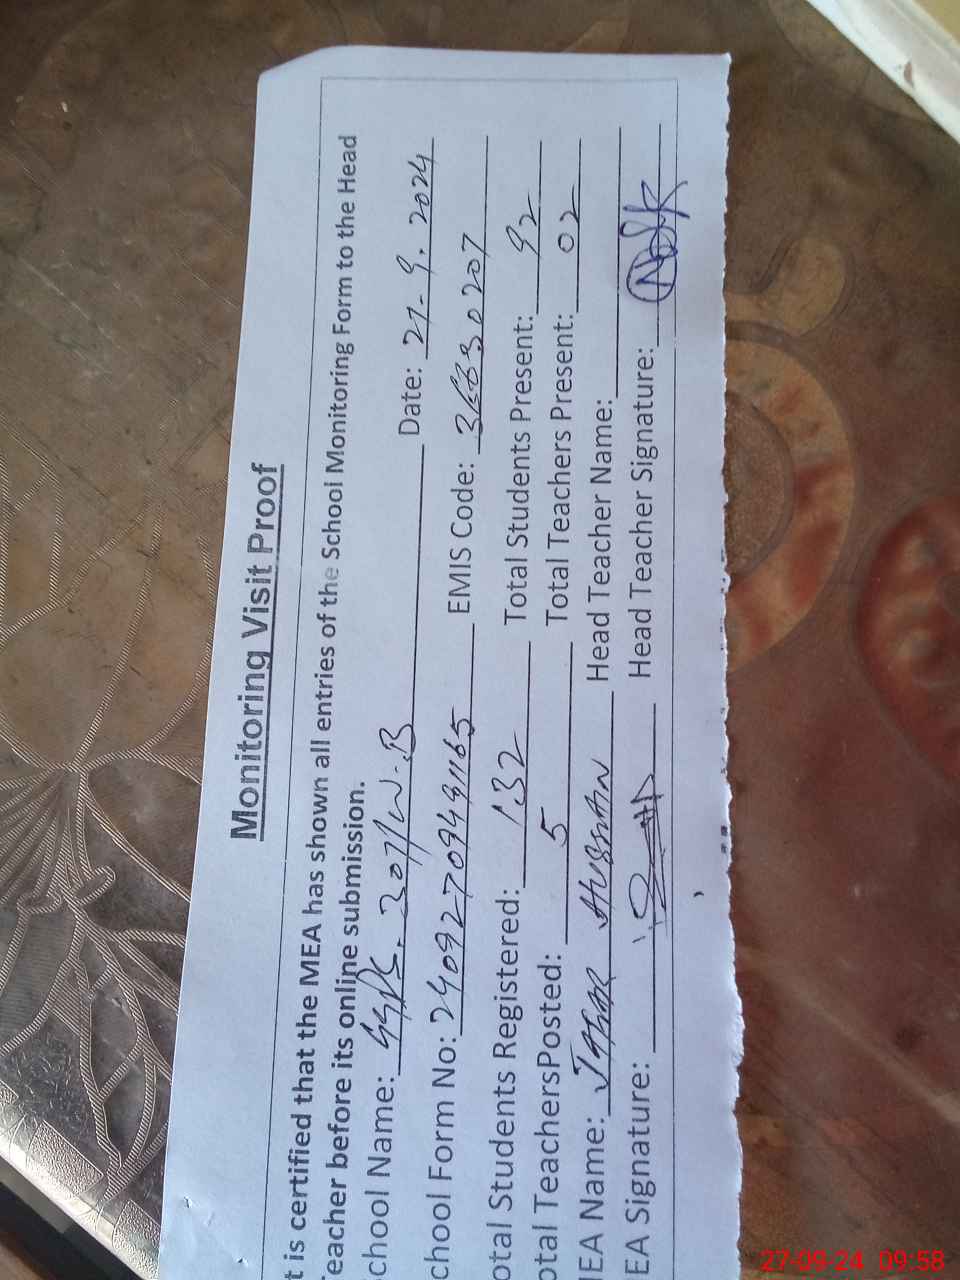 Monitoring Visit Proof
t is certified that the MEA has shown all entries of the School Monitoring Form to the Head
Teacher before its online submission.
chool Name: GGPS. 307/W.B Date: 27-9.2024
chool Form No: 240927094931165 EMIS Code: 36330207
otal Students Registered: 132 Total Students Present: 92
otal TeachersPosted: 5 Total Teachers Present: 02
IEA Name: Jafar Hussain Head Teacher Name:
EA Signature: Head Teacher Signature:
27-09-24 09:58